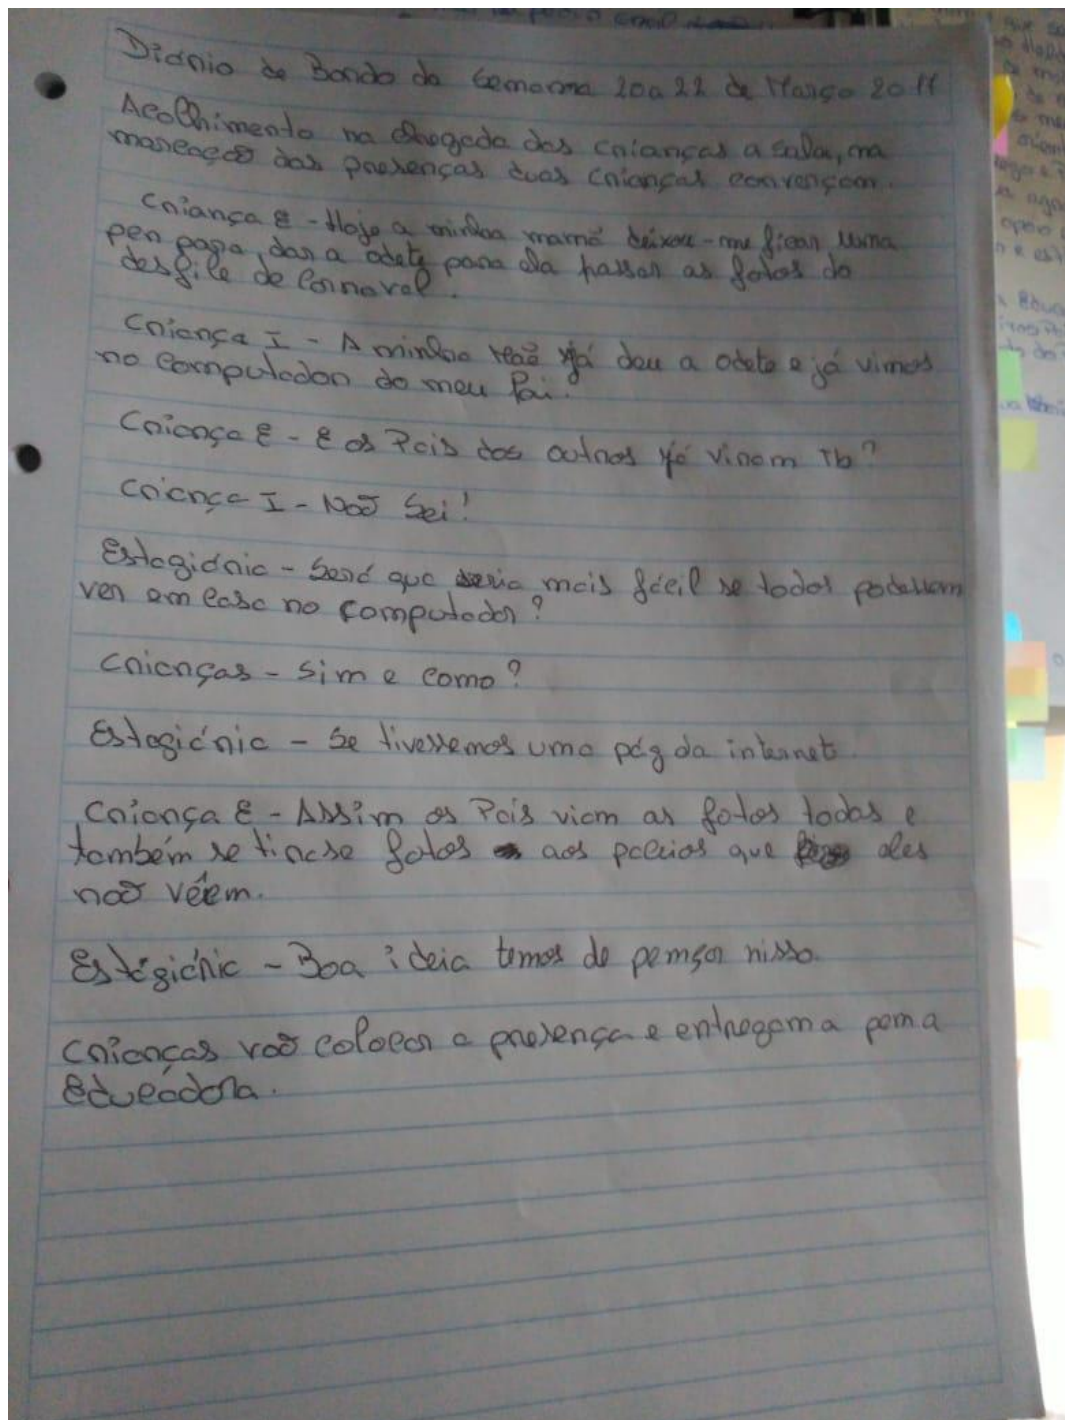 Diário de Bordo da Semana 20 a 22 de Março 2011
Acolhimento na chegada das crianças a sala, na
marcação das presenças duas crianças converçam.
Criança E - Hoje a minha mamã deixou-me ficar uma
pen para dar a odete para ela passar as fotos do
desfile de Carnaval.
Criança I - A minha já deu a odete e já vimos
no Computador do meu Pai.
Criança E - E os Pais dos outros já viram Tb?
Criança I - Não Sei!
Estagiária - Será que seria mais fácil se todos podessem
ver em casa no computador?
Crianças - Sim e como?
Estagiária - Se tivessemos uma pág da internet.
Criança E - Assim os Pais viam as fotos todas e
também se tirasse fotos aos que eles
não vêem.
Estágiária - Boa ideia temos de pensar nisso.
Crianças vão colocar a presença e entregam a pen a
Educadora.